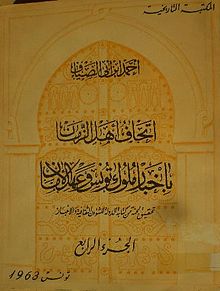 المكتبة التاريخية
احمد ابن ابي الضياف
اتحاف اهل الزمان
باخبار ملوك تونس وعهد الامان
تحقيق لجنة من كتابة الدولة للشؤون الثقافية والاخبار
الجزء الرابع
تونس 1963